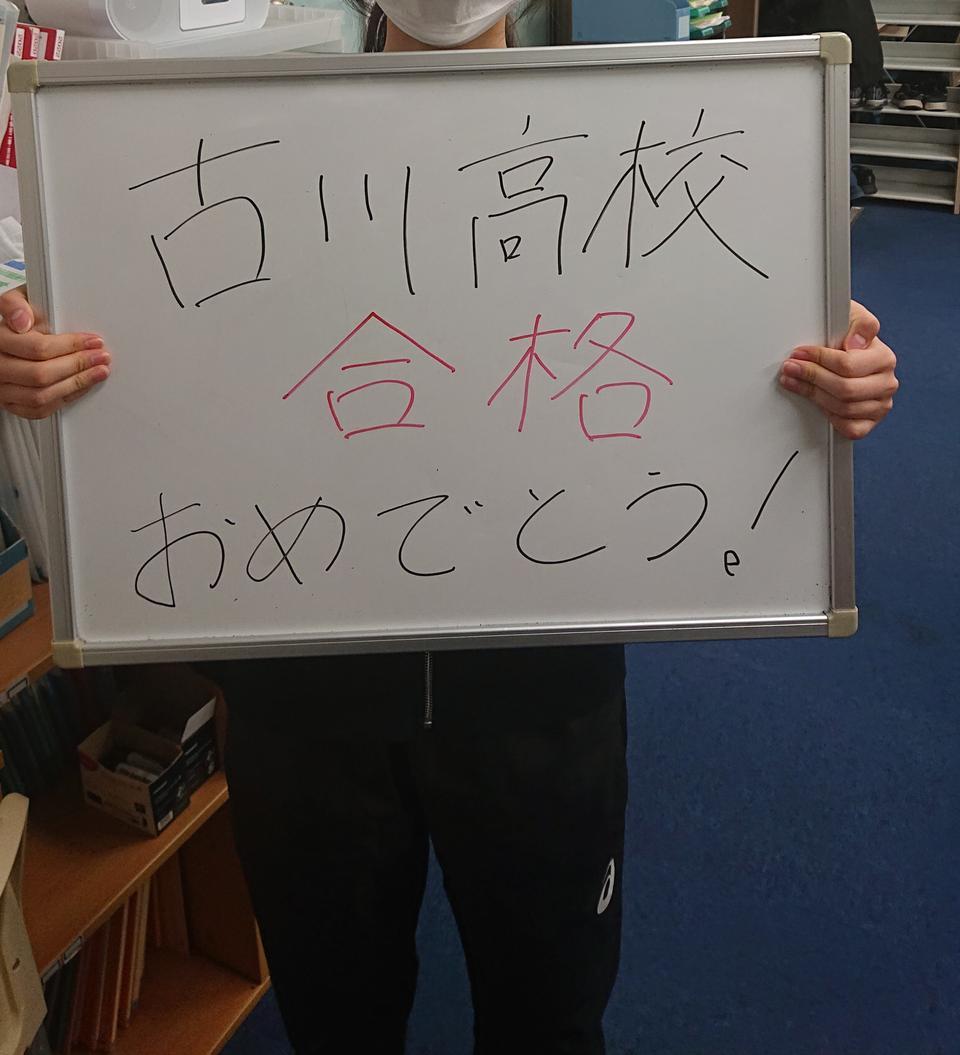 古川高校
合格
おめでとう!